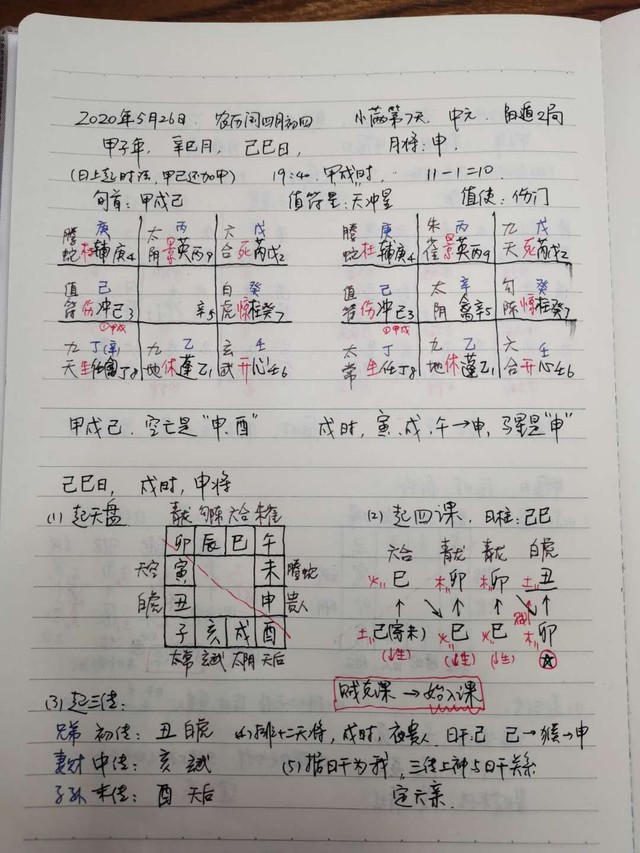 2020年5月26日. 农历闰四月初四 小满第7天. 中元. 阳遁2局
甲子年, 辛巳月, 己巳日, 月将:申.
(日上起时法,甲己还加甲) 19:40. 甲戌时. 11-1=10.
旬首:甲戌己 值符星:天冲星 值使:伤门
螣 庚 太 丙 六 戊 螣 庚 朱 丙 九 戊
蛇杜辅庚4 阴景英丙9 合死芮戊2 蛇杜辅庚4 雀景英丙9 天死芮戊2
值 己 白 癸 值 己 太 辛 勾 癸
符伤冲己3 辛5 虎惊柱癸7 符伤冲己3 阴禽辛5 陈惊柱癸7
①甲戌 ①甲戌
九 丁(辛) 九 乙 玄 壬 太 丁 九 乙 六 壬
天生任禽丁8 地休蓬乙1 武开心壬6 常生任丁8 地休蓬乙1 合开心壬6
甲戌己.空亡是"申.酉" 戌时,寅.戌.午→申,马星是"申"
己巳日, 戌时,申将
(1) 起天盘 青龙 勾陈 六合 朱雀 (2) 起四课. 日柱:己巳
卯 辰 巳 午 六合 青龙 青龙 白虎
天空 寅 未 螣蛇 火 巳 木 卯 木 卯 土 丑
白虎 丑 申 贵人 ↑ ↘ ↑ ↑ ↘ ↑
子 亥 戌 酉 土 己(寄未) 火 巳 火 巳 木 卯
太常 玄武 太阴 天后 (↓生) (↓生) (↓生)
贼克课 → 始入课
(3) 起三传:
兄弟 初传: 丑 白虎 (4) 排十二天将, 戌时, 夜贵人. 日干:己 己→猴→申
妻财 中传: 亥 玄武 (5) 按日干为我, 三传上神与日干关系
子孙 末传: 酉 天后 定六亲.